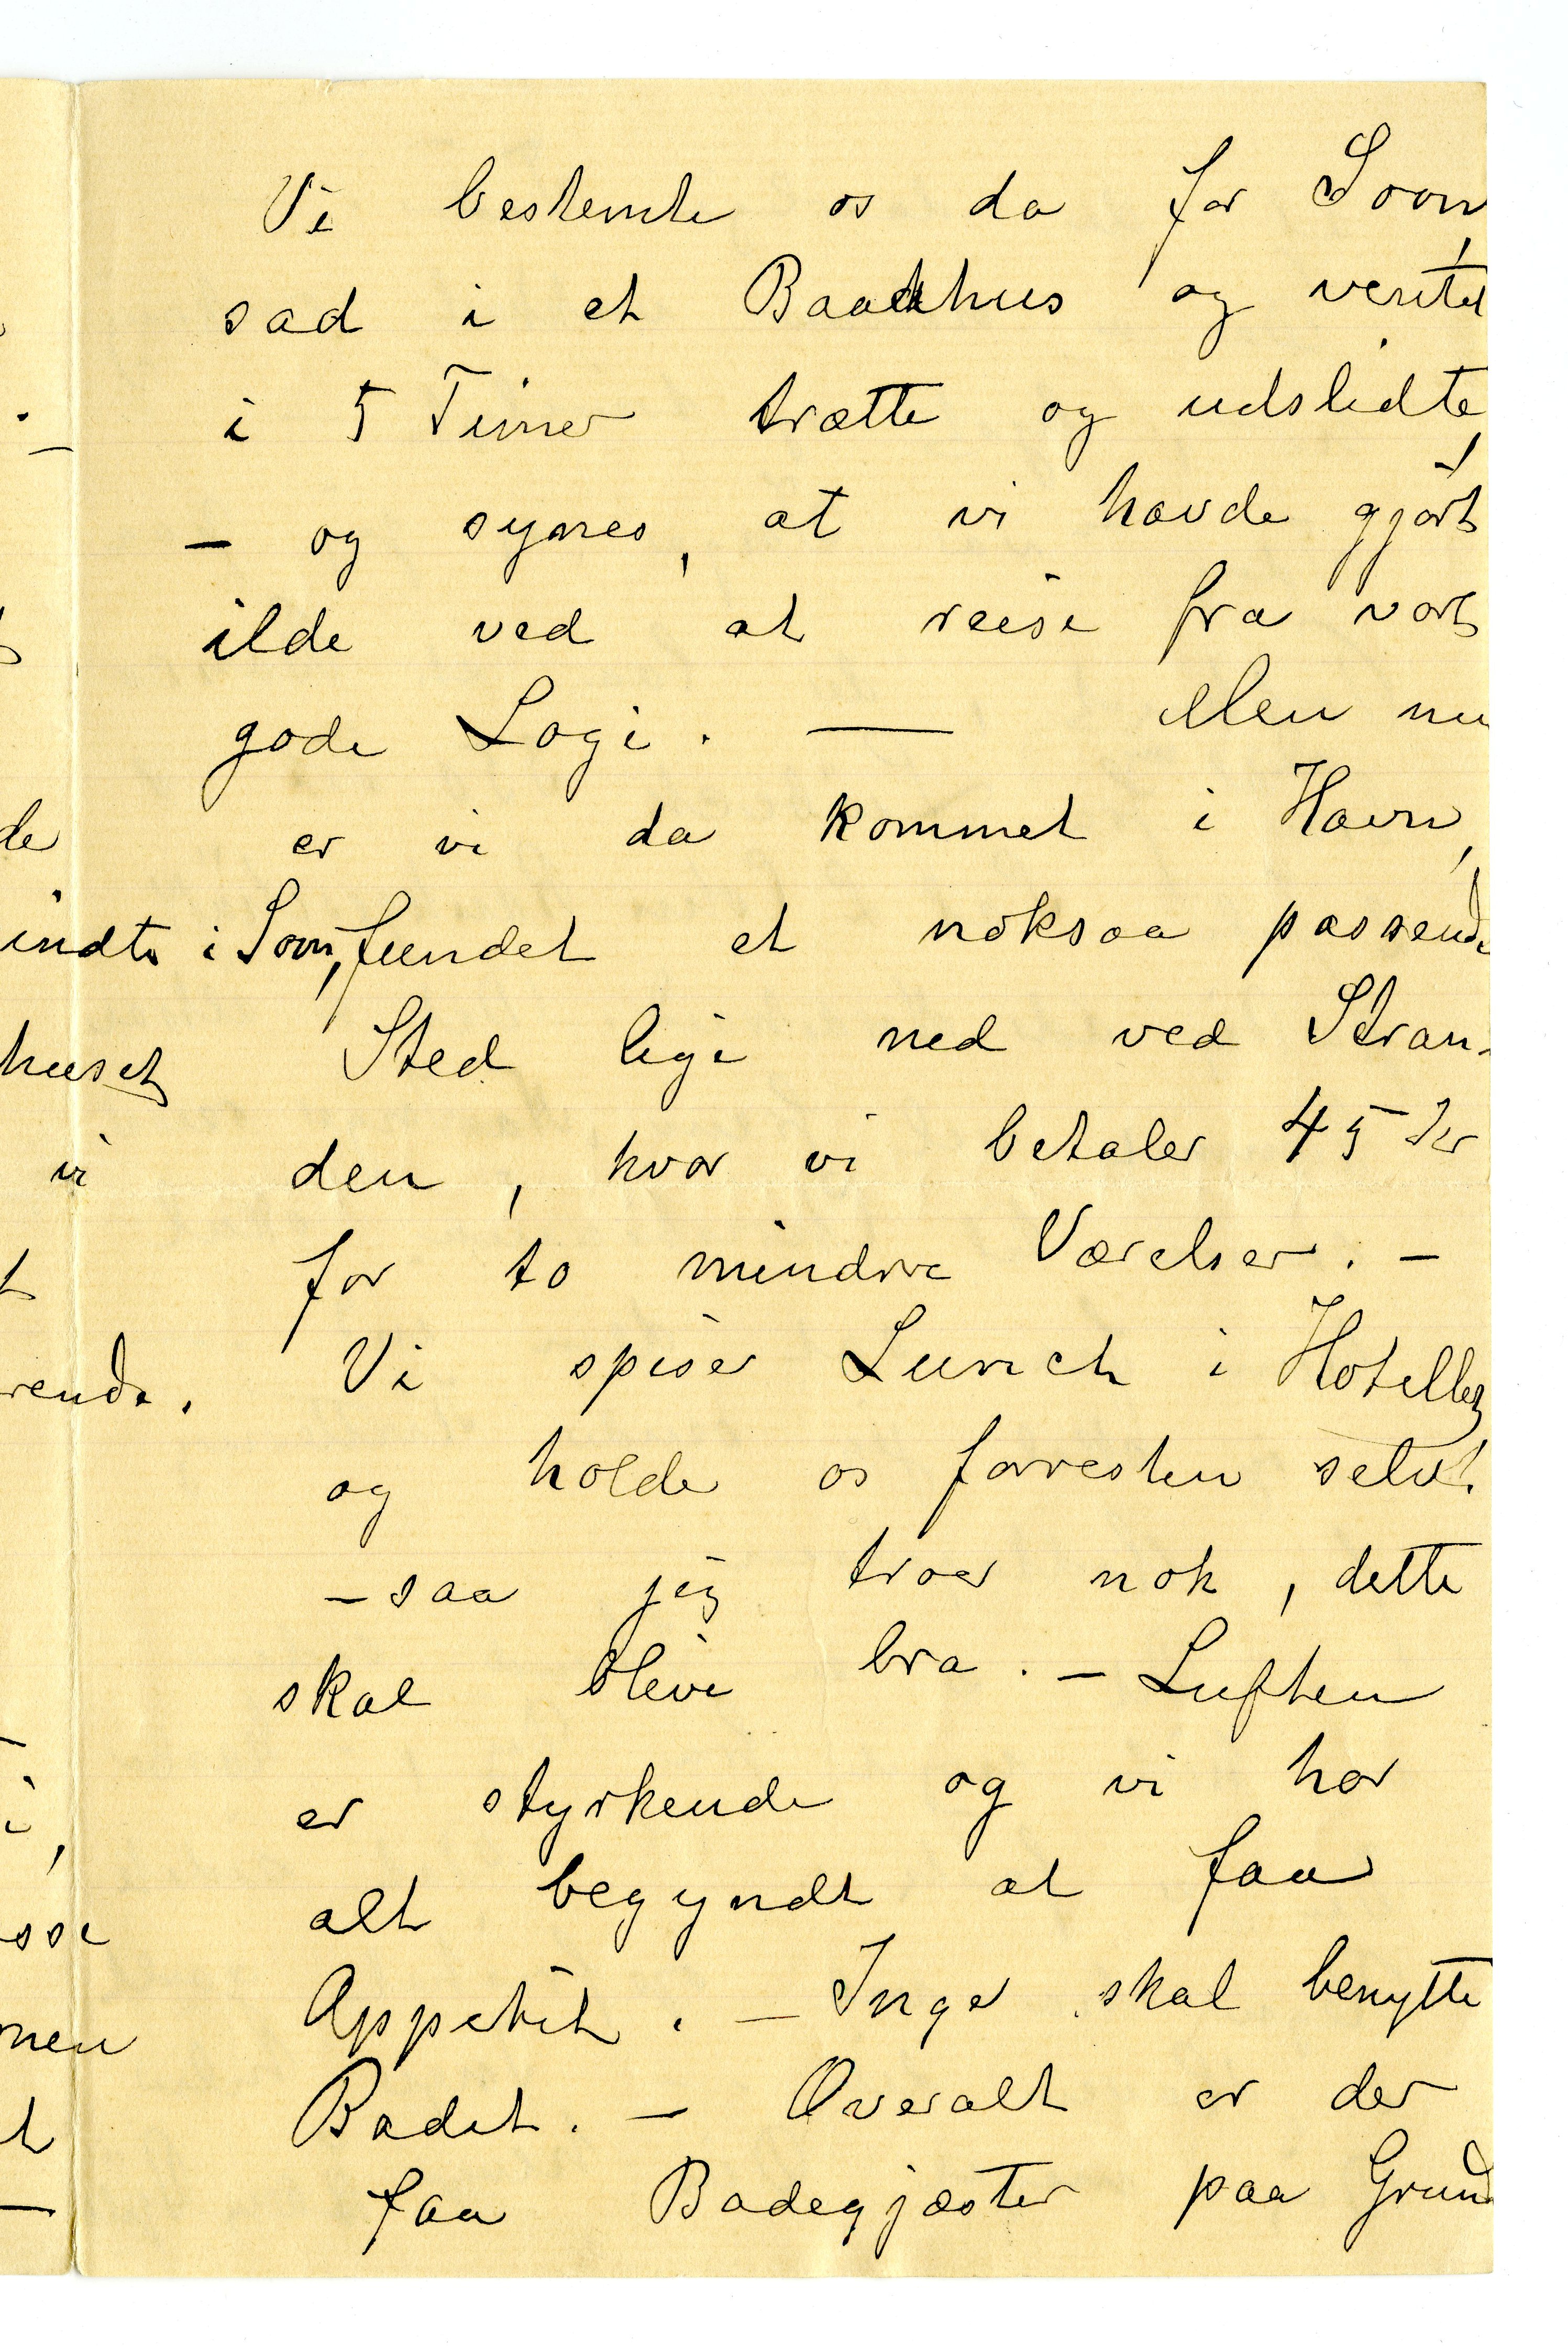 Vi bestemte os da for Soon,
sad i et Baadhus og ventet
i 5 Timer trætte og udslidte,
– og synes, at vi havde gjort
ilde ved at reise fra vort
gode Logi. — Men nu
er vi da kommet i Havn,
i Soon, fundet et noksaa passende
Sted lige ned ved Stran-
den, hvor vi betaler 45 Kr
for to mindre Værelser. –
Vi spiser Lunch i Hotellet
og holde os forresten selv.
– saa jeg troer nok, dette
skal blive bra. – Luften
er styrkende og vi har
alt begyndt at faa
Appetit. – Inga skal benytte
Badet. – Overalt er der
faa Badegjæster paa Grund